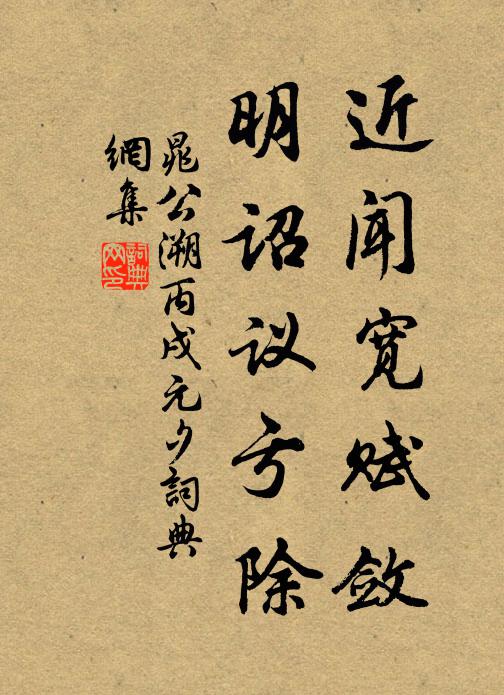 近闻宽赋敛
明诏议亏除
晁公溯丙戌元夕词典
網集
詞典網印